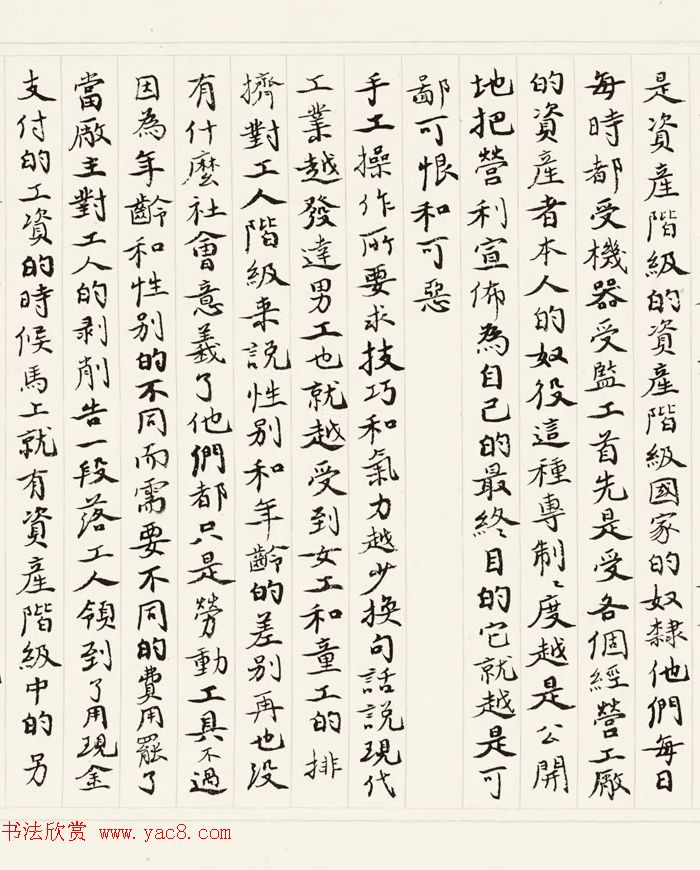 是資產階級的資產階級國家的奴隸他們每日
每時都受機器受監工首先是受各個經營工廠
的資產者本人的奴役這種專制〻度越是公開
地把營利宣佈為自己的最終目的它就越是可
鄙可恨和可惡
手工操作所要求技巧和氣力越少換句話說現代
工業越發達男工也就越受到女工和童工的排
擠對工人階級来說性别和年齡的差别再也没
有什麼社會意義了他們都只是勞動工具不過
因為年齡和性别的不同而需要不同的費用罷了
當廠主對工人的剥削告一段落工人領到了用現金
支付的工資的時候馬上就有資產階級中的另
书法欣赏 www.yac8.com